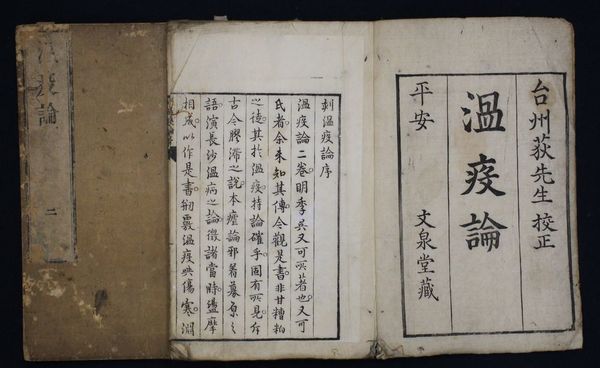 台州荻先生校正
溫疫論
平安 文泉堂藏
刻溫疫論序
溫疫論二卷明季吳又可所著也又可
氏者余未知其傳今觀是書非甘糟粕
之徒其於溫疫持論確乎固有所見斥
古今膠滯之說本瘧論邪著募原之
語演長沙溫病之論徵諸當時盪摩
相成以作是書剏覈溫疫與傷寒淵
溫疫論 二